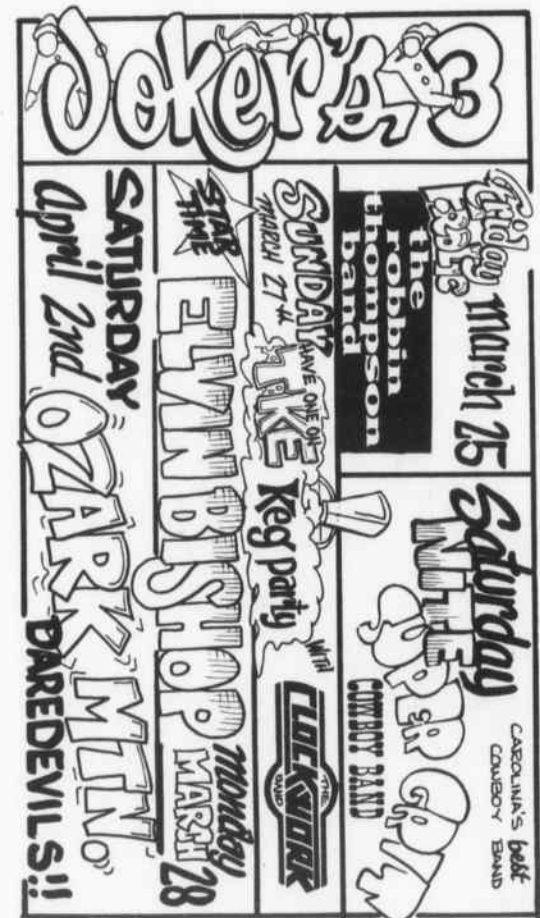 Joker's 3
Friday
march 25
the
robbin
thompson
band
Saturday
NITE
CAROLINA'S best
COWBOY BAND
SUPER GRIT
COWBOY BAND
SUNDAY
MARCH 27th
HAVE ONE ON
MIKE
Keg party
WITH
THE
CLOCKWORK
BAND
STAR
TIME
ELVIN BISHOP
monday
MARCH
28
SATURDAY
april 2nd
OZARK MTN.
DAREDEVILS!!